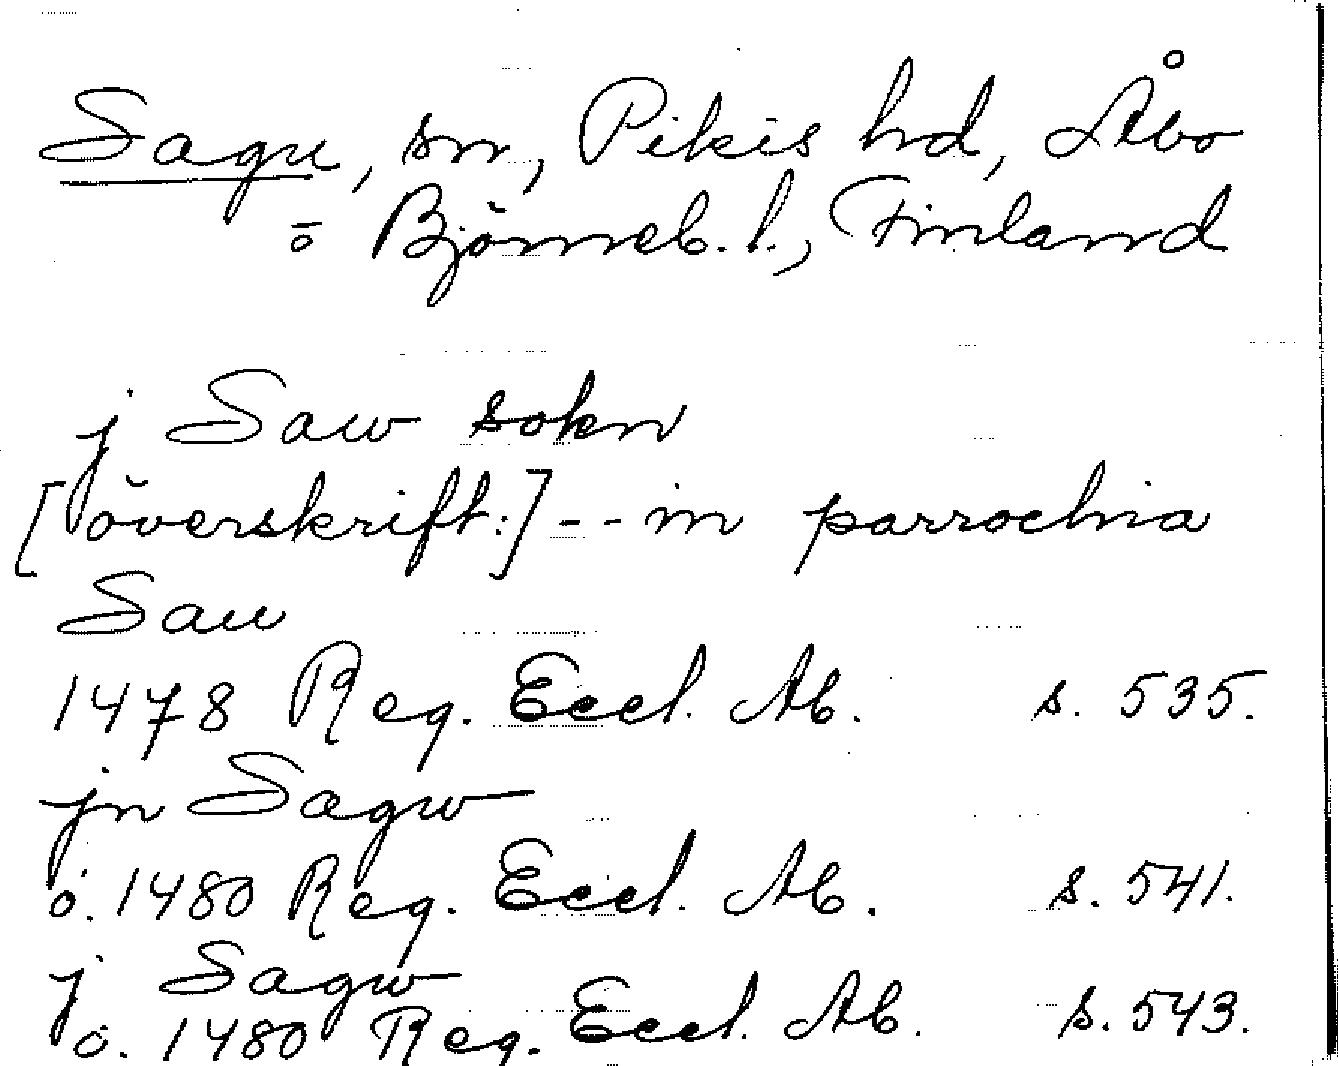 Sagu, sn, Pikis hd, Åbo
o Björneb. l., Finland
j Saw sokn
[överskrift:] -- in parrochia
Sau
1478 Reg. Eccl. Ab. s. 535.
jn Sagw
o. 1480 Reg. Eccl. Ab. s. 541.
j Sagw
o. 1480 Reg. Eccl. Ab. s. 543.